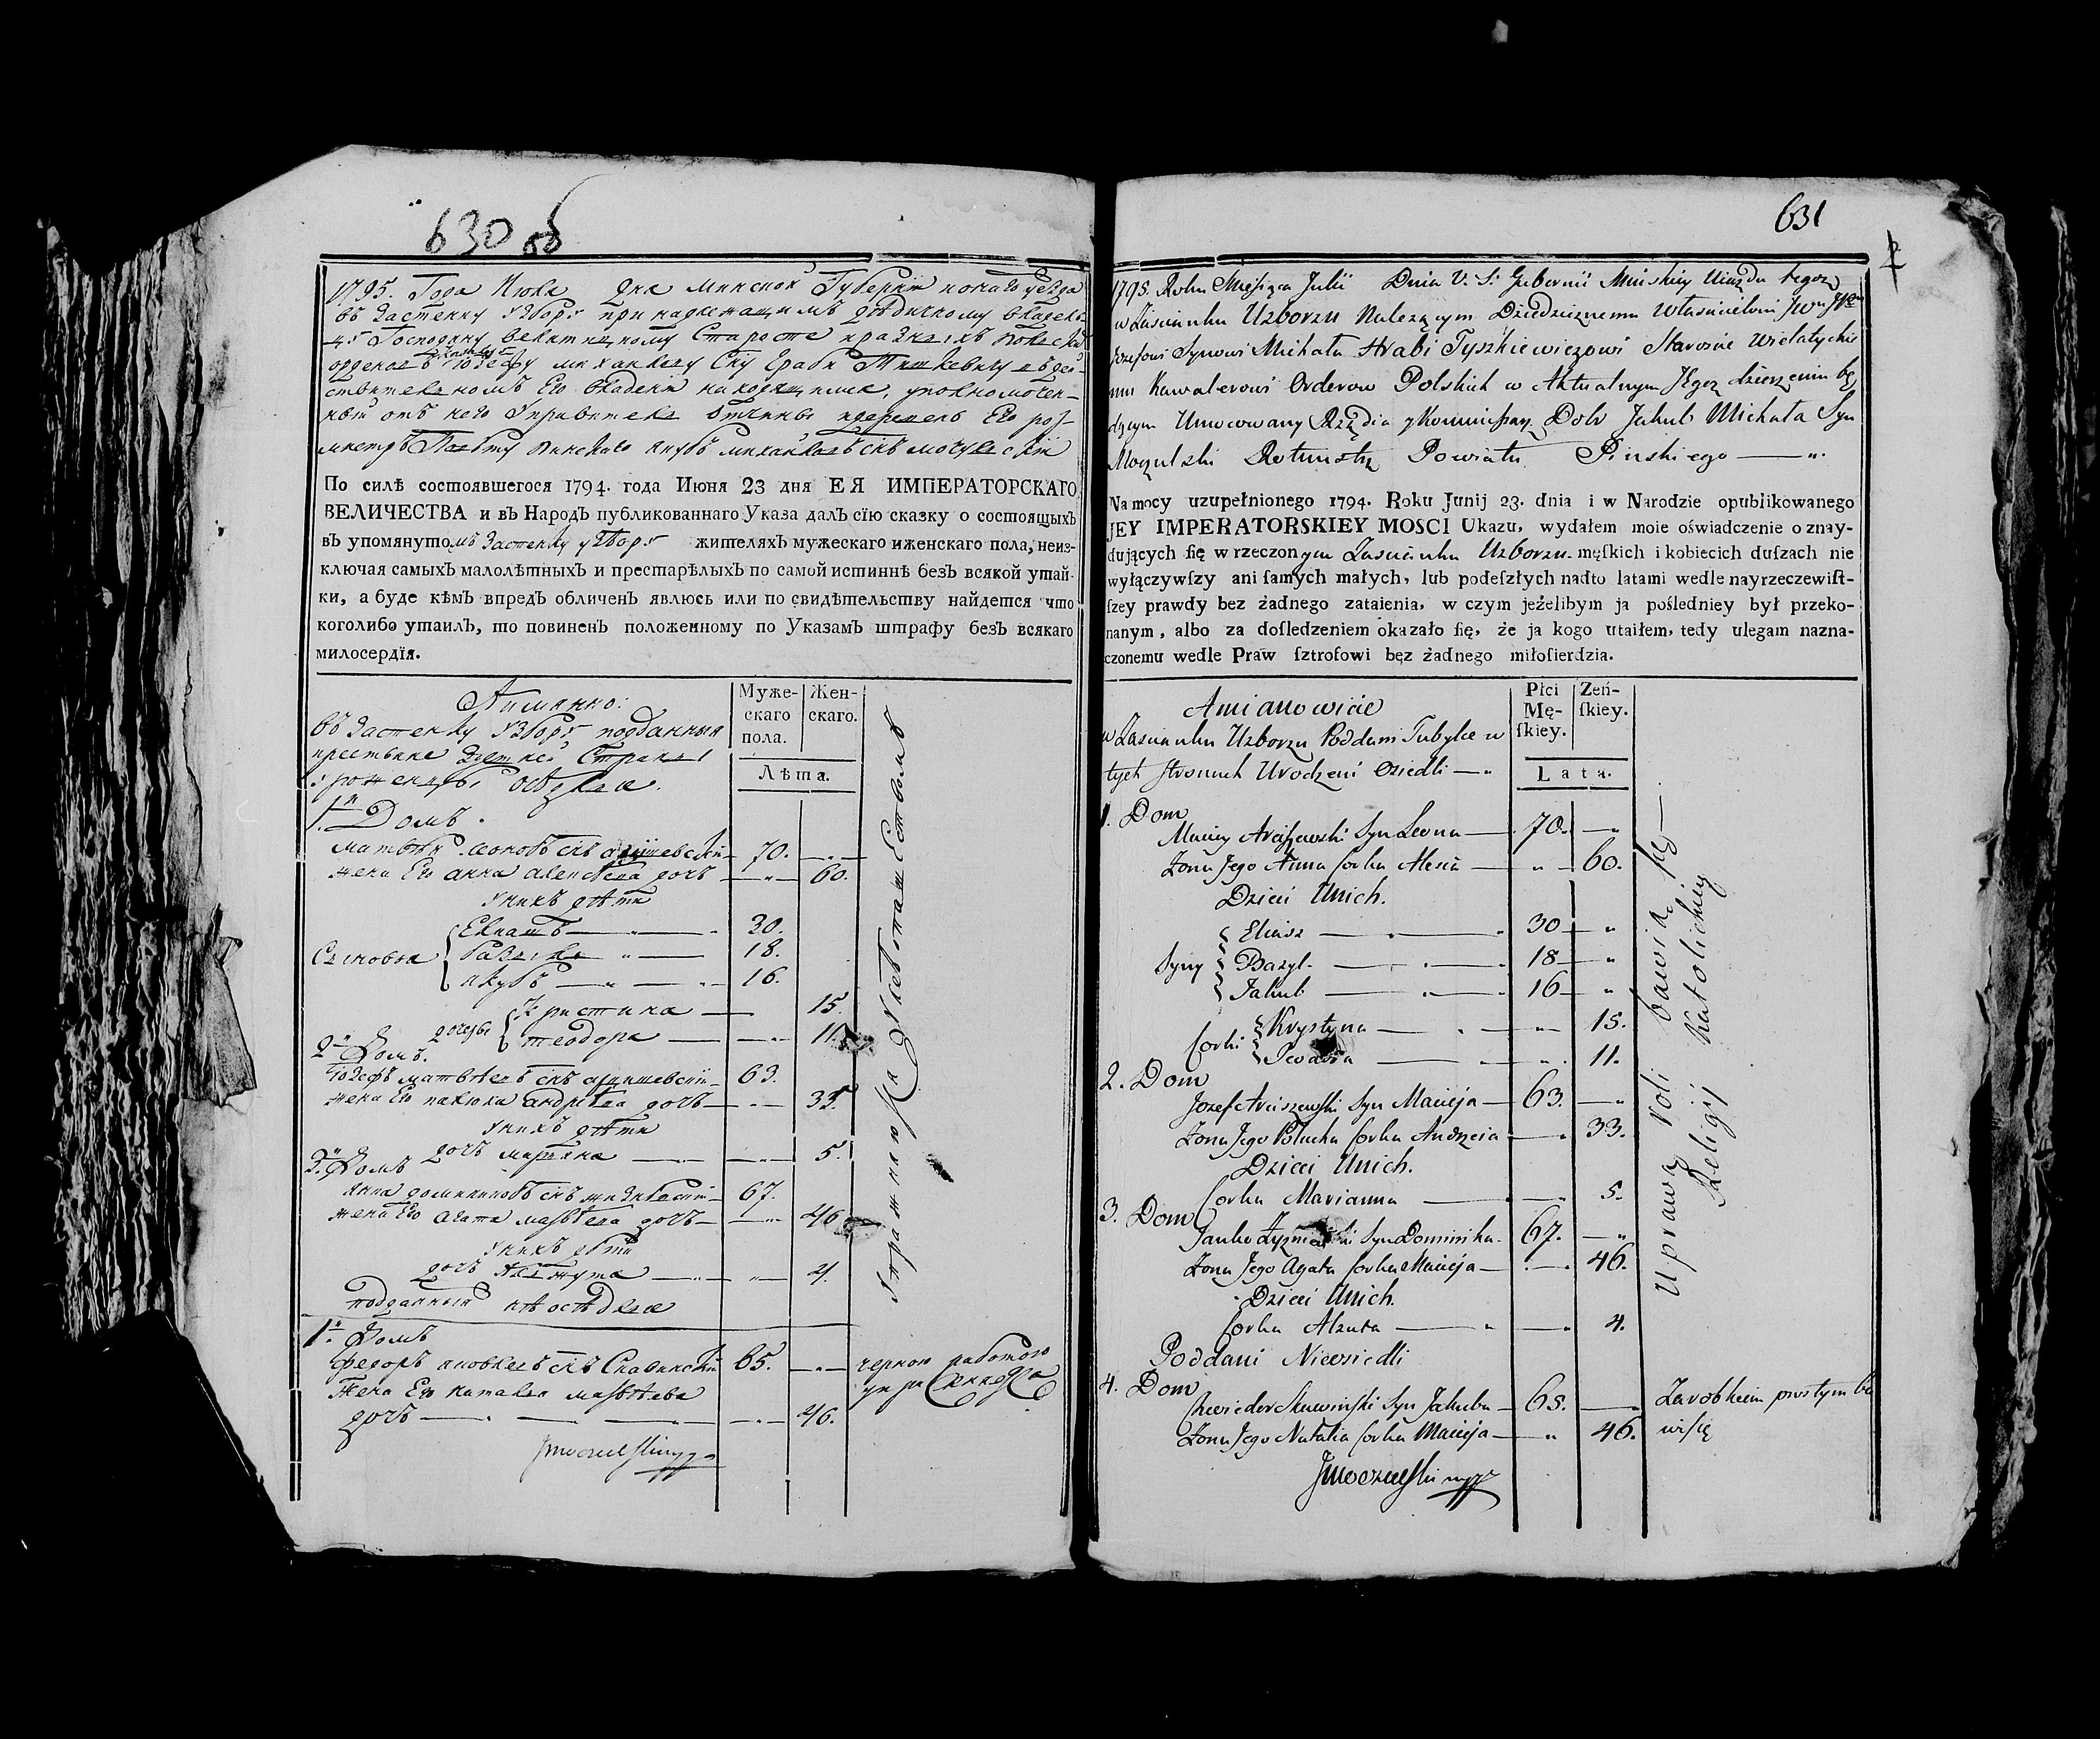 630 об
1795. Года Июля Дня Минской Губернии уезда
въ Застенку Узборъ принадлежащимъ дѣдичному владель-
Господину Старосте Польскихъ
орденовъ Кавалеру Юзефу Михайлову Сну Графу Тишкевичу въ дей-
ствительномъ Его владении находящимся, уполномочен-
ный отъ него Управитель Его рот-
мистръ Повету Пинскаго Якубъ Михайловъ снъ Мочульский
По силѣ состоявшегося 1794. года Июня 23 дня ЕЯ ИМПЕРАТОРСКАГО
ВЕЛИЧЕСТВА и въ Народъ публикованнаго Указа далъ сїю сказку о состоящыхъ
въ упомянутомъ Застенку Узборъ жителяхъ мужескаго иженскаго пола, неиз-
ключая самыхъ малолѣтныхъ и престарѣлыхъ по самой истиннѣ безъ всякой утай-
ки, а буде кѣмъ впредъ обличенъ явлюсь или по свидѣтельству найдется что
коголибо утаилъ, то повиненъ положенному по Указамъ штрафу безъ всякаго
милосердїя.
Аимянно:
въ Застенку Узборъ подданныя
урожденцы оседлые.
Муже-
скаго
пола.
Жен-
скаго.
Лѣта.
1й Домъ.
Матвѣй Леоновъ снъ Арцишевский 70.
жена Его Анна Алексѣева дочь 60.
У нихъ дѣти
Сыновья
Базыль 18.
Якубъ 16.
дочеры
Кристина 15.
Теодора 11.
2й Домъ.
Юзефъ Матвѣевъ снъ Арцишевский 63.
жена Его Полюха Андрѣева дочь 33.
У нихъ дѣти
дочь Марьяна 5.
3й Домъ
Янко Доминиковъ снъ 67.
жена Его Агата Матвѣева дочь 46
У нихъ дѣти
дочь Альжута 4.
подданныи неоседлые
1й Домъ
Федоръ Яковлевъ снъ Скавинский 65.
Жена Его Наталья Матвѣева
дочь 46.
JMoczulski mpp
Упражняются хлебопашествомъ
черною работою
упражняется
631
1795. Roku Miesiąca Julii Dnia V. S. Gubernii Mińskiey Uiazdu tegoż
w Zaścianku Uzborzu Należącym Dziedzicznemu Właścicielowi JW
Jozefowi Synowi Michała Hrabi Tyszkiewiczowi Staroście Wielatyckie
mu Kawalerowi Orderow Polskich w Aktualnym Jego dzierzeniu bę
dącym Umocowany Rządca y Kommissarz Dobr Jakub Michała Syn
Moczulski Rotmistrz Powiatu Pinskiego
Na mocy uzupełnionego 1794. Roku Junij 23. dnia i w Narodzie opublikowanego
JEY IMPERATORSKIEY MOSCI Ukazu, wydałem moie oświadczenie o znay-
dujących ſię w rzeczonym Zaścianku Uzborzu męſkich i kobiecich duſzach nie
wyłączywſzy ani ſamych małych, lub podeſzłych nadto latami wedle nayrzeczewiſt-
ſzey prawdy bez żadnego zataienia, w czym jeżelibym ja poślednieу był przeko-
nanym, albo za doſledzeniem okazało ſię, że ja kogo utaiłem, tedy ulegam nazna-
czonemu wedle Praw ſztrofowi bęz żadnego miłoſierdzia.
Amianowicie
w Zaścianku Uzborzu Poddani Tubylce w
tych stronach Urodzeni Osiedli
Płci
Mę-
ſkiey.
Zeń-
ſkiey.
Lata.
1. Dom
Maciey Arciszewski Syn Leona 70.
Żona Jego Anna Corka Alexia 60.
Dzieci Unich.
Syny
Eliasz 30
Bazyl 18
Jakub 16
Corki
Krystyna 15.
Teodora 11.
2. Dom
Jozef Arciszewski Syn Macieja 63.
Żona Jego Polucha Corka Andrzeia 33.
Dzieci Unich.
Corka Marianna 5.
3. Dom
Janko Syn Dominika 67.
Żona Jego Agata Corka Macieja 46.
Dzieci Unich.
Corka Alzuta 4.
Poddani Nieosiedli
4. Dom
Chwiedor Skawinski Syn Jakuba 65.
Żona Jego Natalia Corka Macieja 46.
JMoczulski mpp
Uprawą roli bawią się
Religij Katolickiey
Zarobkiem prostym ba
wi się